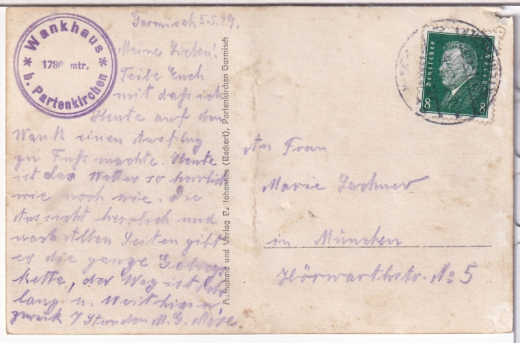 Wankhaus
1780 mtr.
b. Partenkirchen
Garmisch 5.5.29.
Meine Lieben!
Teile Euch
mit daß ich
Heute auf den
Wank einen Ausflug
zu Fuß machte. Heute
ist das Wetter so herrlich
wie noch nie. Die
Aussicht herrlich und
nach allen Seiten gibt
es die ganze Gebirgs
kette, der Weg ist sehr
lang u. Weit hin u
zurück 7 Stunden M. G.
Aufnahme und Verlag P. Johannes (Beckert), Partenkirchen Garmisch
Deutsches Reich
8 8
An Frau
Marie Lechner
in München
Hörwarthstr. No 5